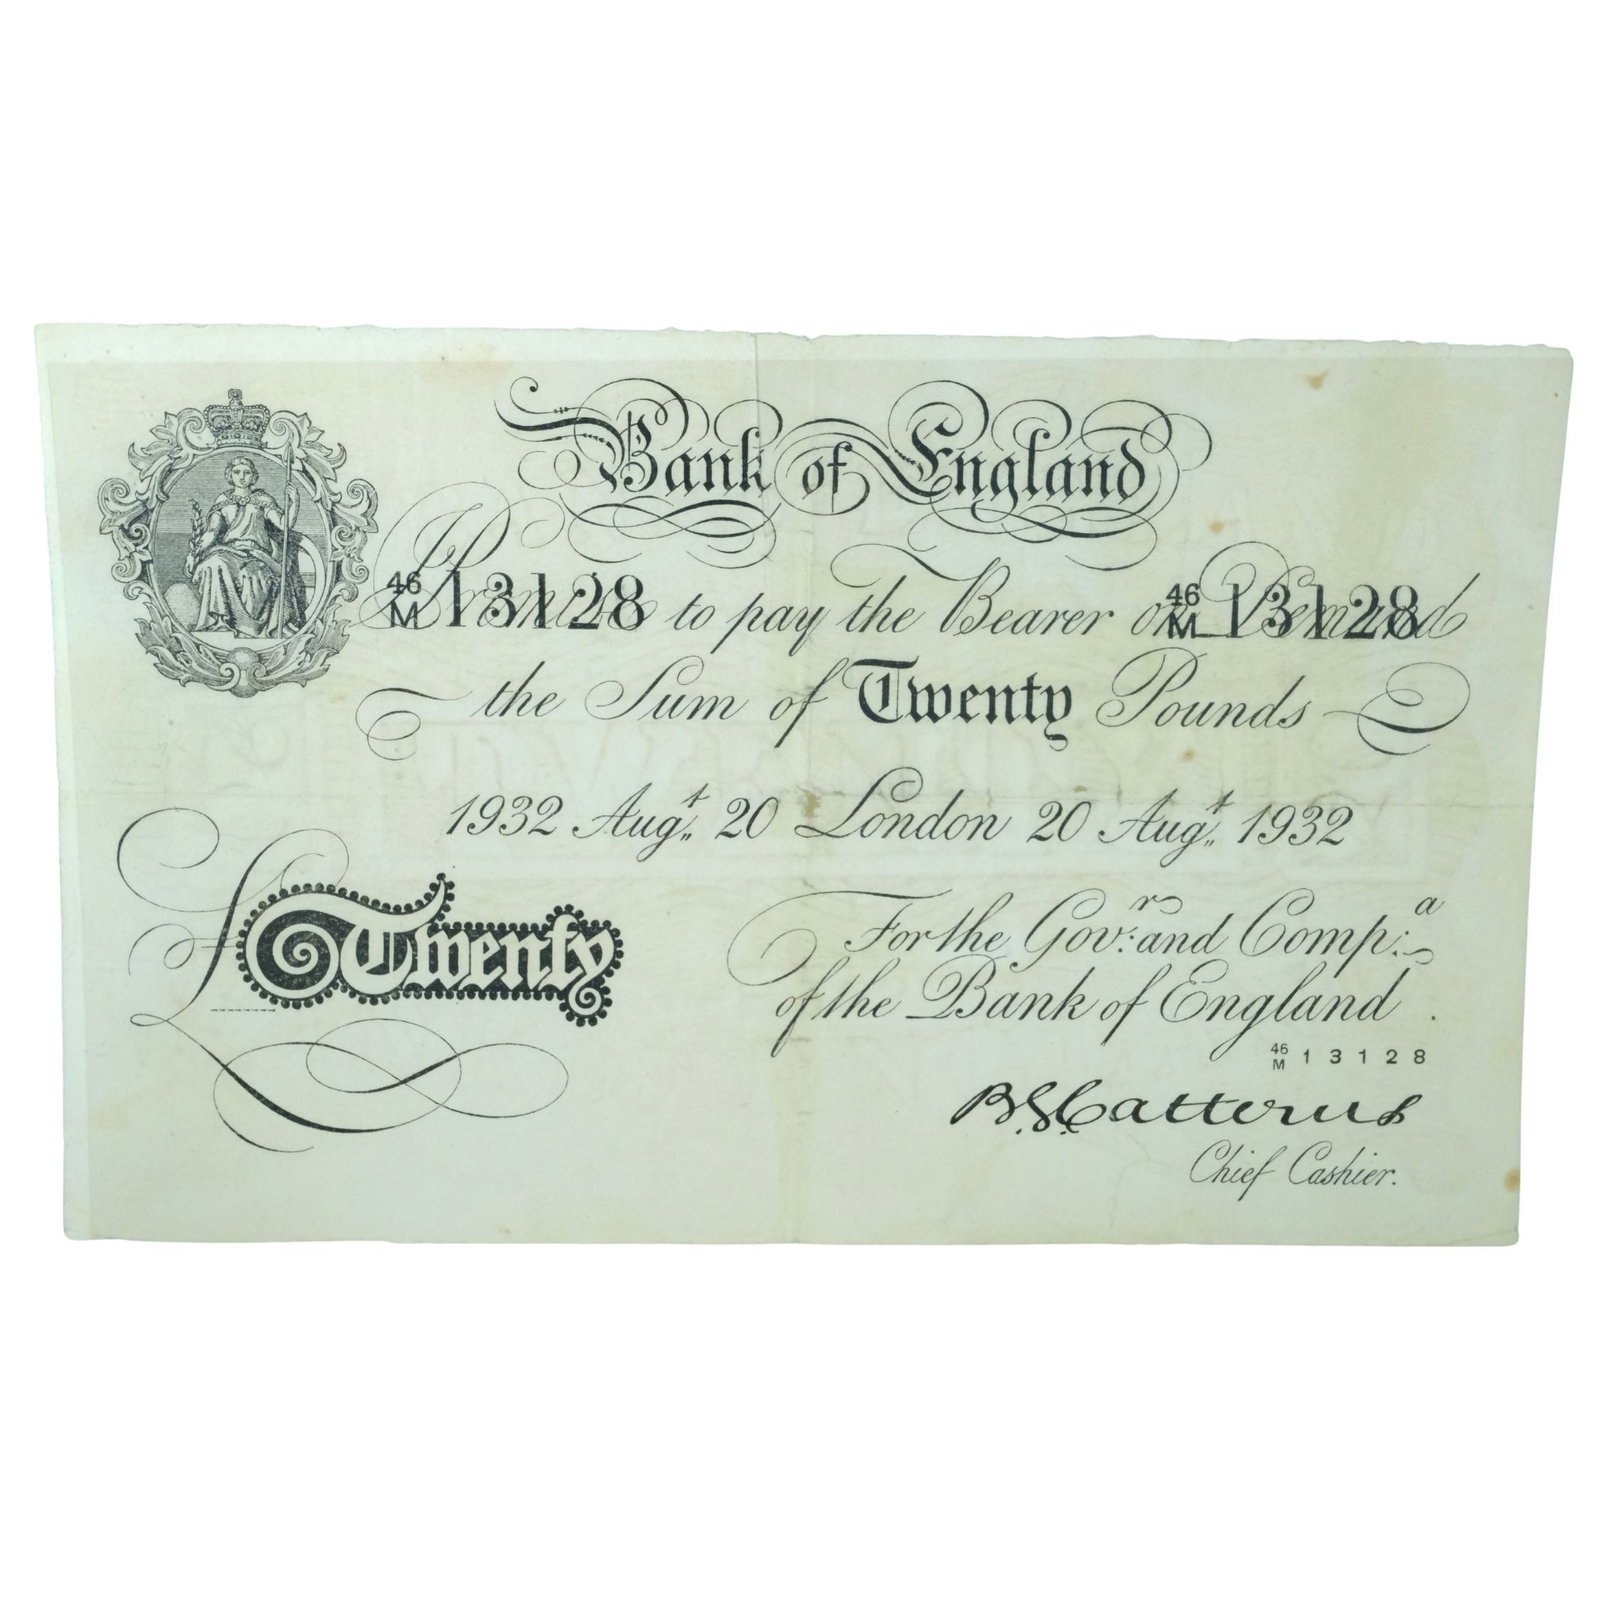 Bank of England
46/M 13128 to pay the Bearer on Demand 46/M 13128
the Sum of Twenty Pounds
1932 Augt. 20 London 20 Augt. 1932
£Twenty
For the Govr: and Compa:
of the Bank of England.
46/M 13128
B.G. Catterns
Chief Cashier.